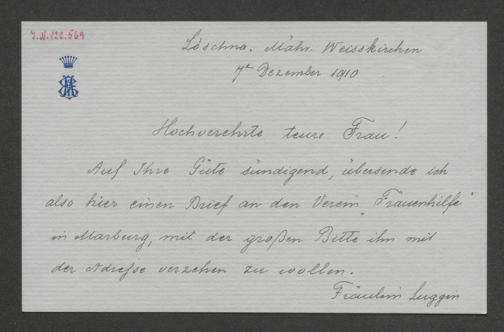 J.N. 122.569
Löschna. Mähr. Weisskirchen
7te Dezember 1910
Hochverehrte teure Frau!
Auf Ihre Güte sündigend, übersende ich
also hier einen Brief an den Verein „Frauenhilfe“
in Marburg, mit der großen Bitte ihn mit
der Adresse versehen zu wollen.
Fräulein Luggin